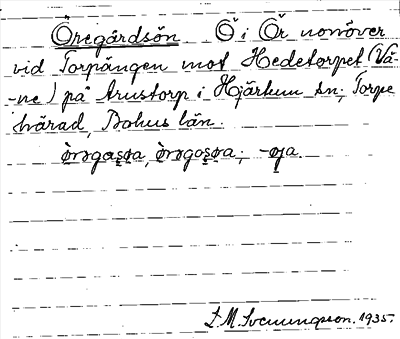 Öregårdsön Ö i Ör norröver
vid Torpängen mot Hedetorpet (Vä-
-ne) på Arustorp i Hjärtum sn; Torpe
härad, Bohus län.
-øja.
L. M. Svenungsson. 1935.